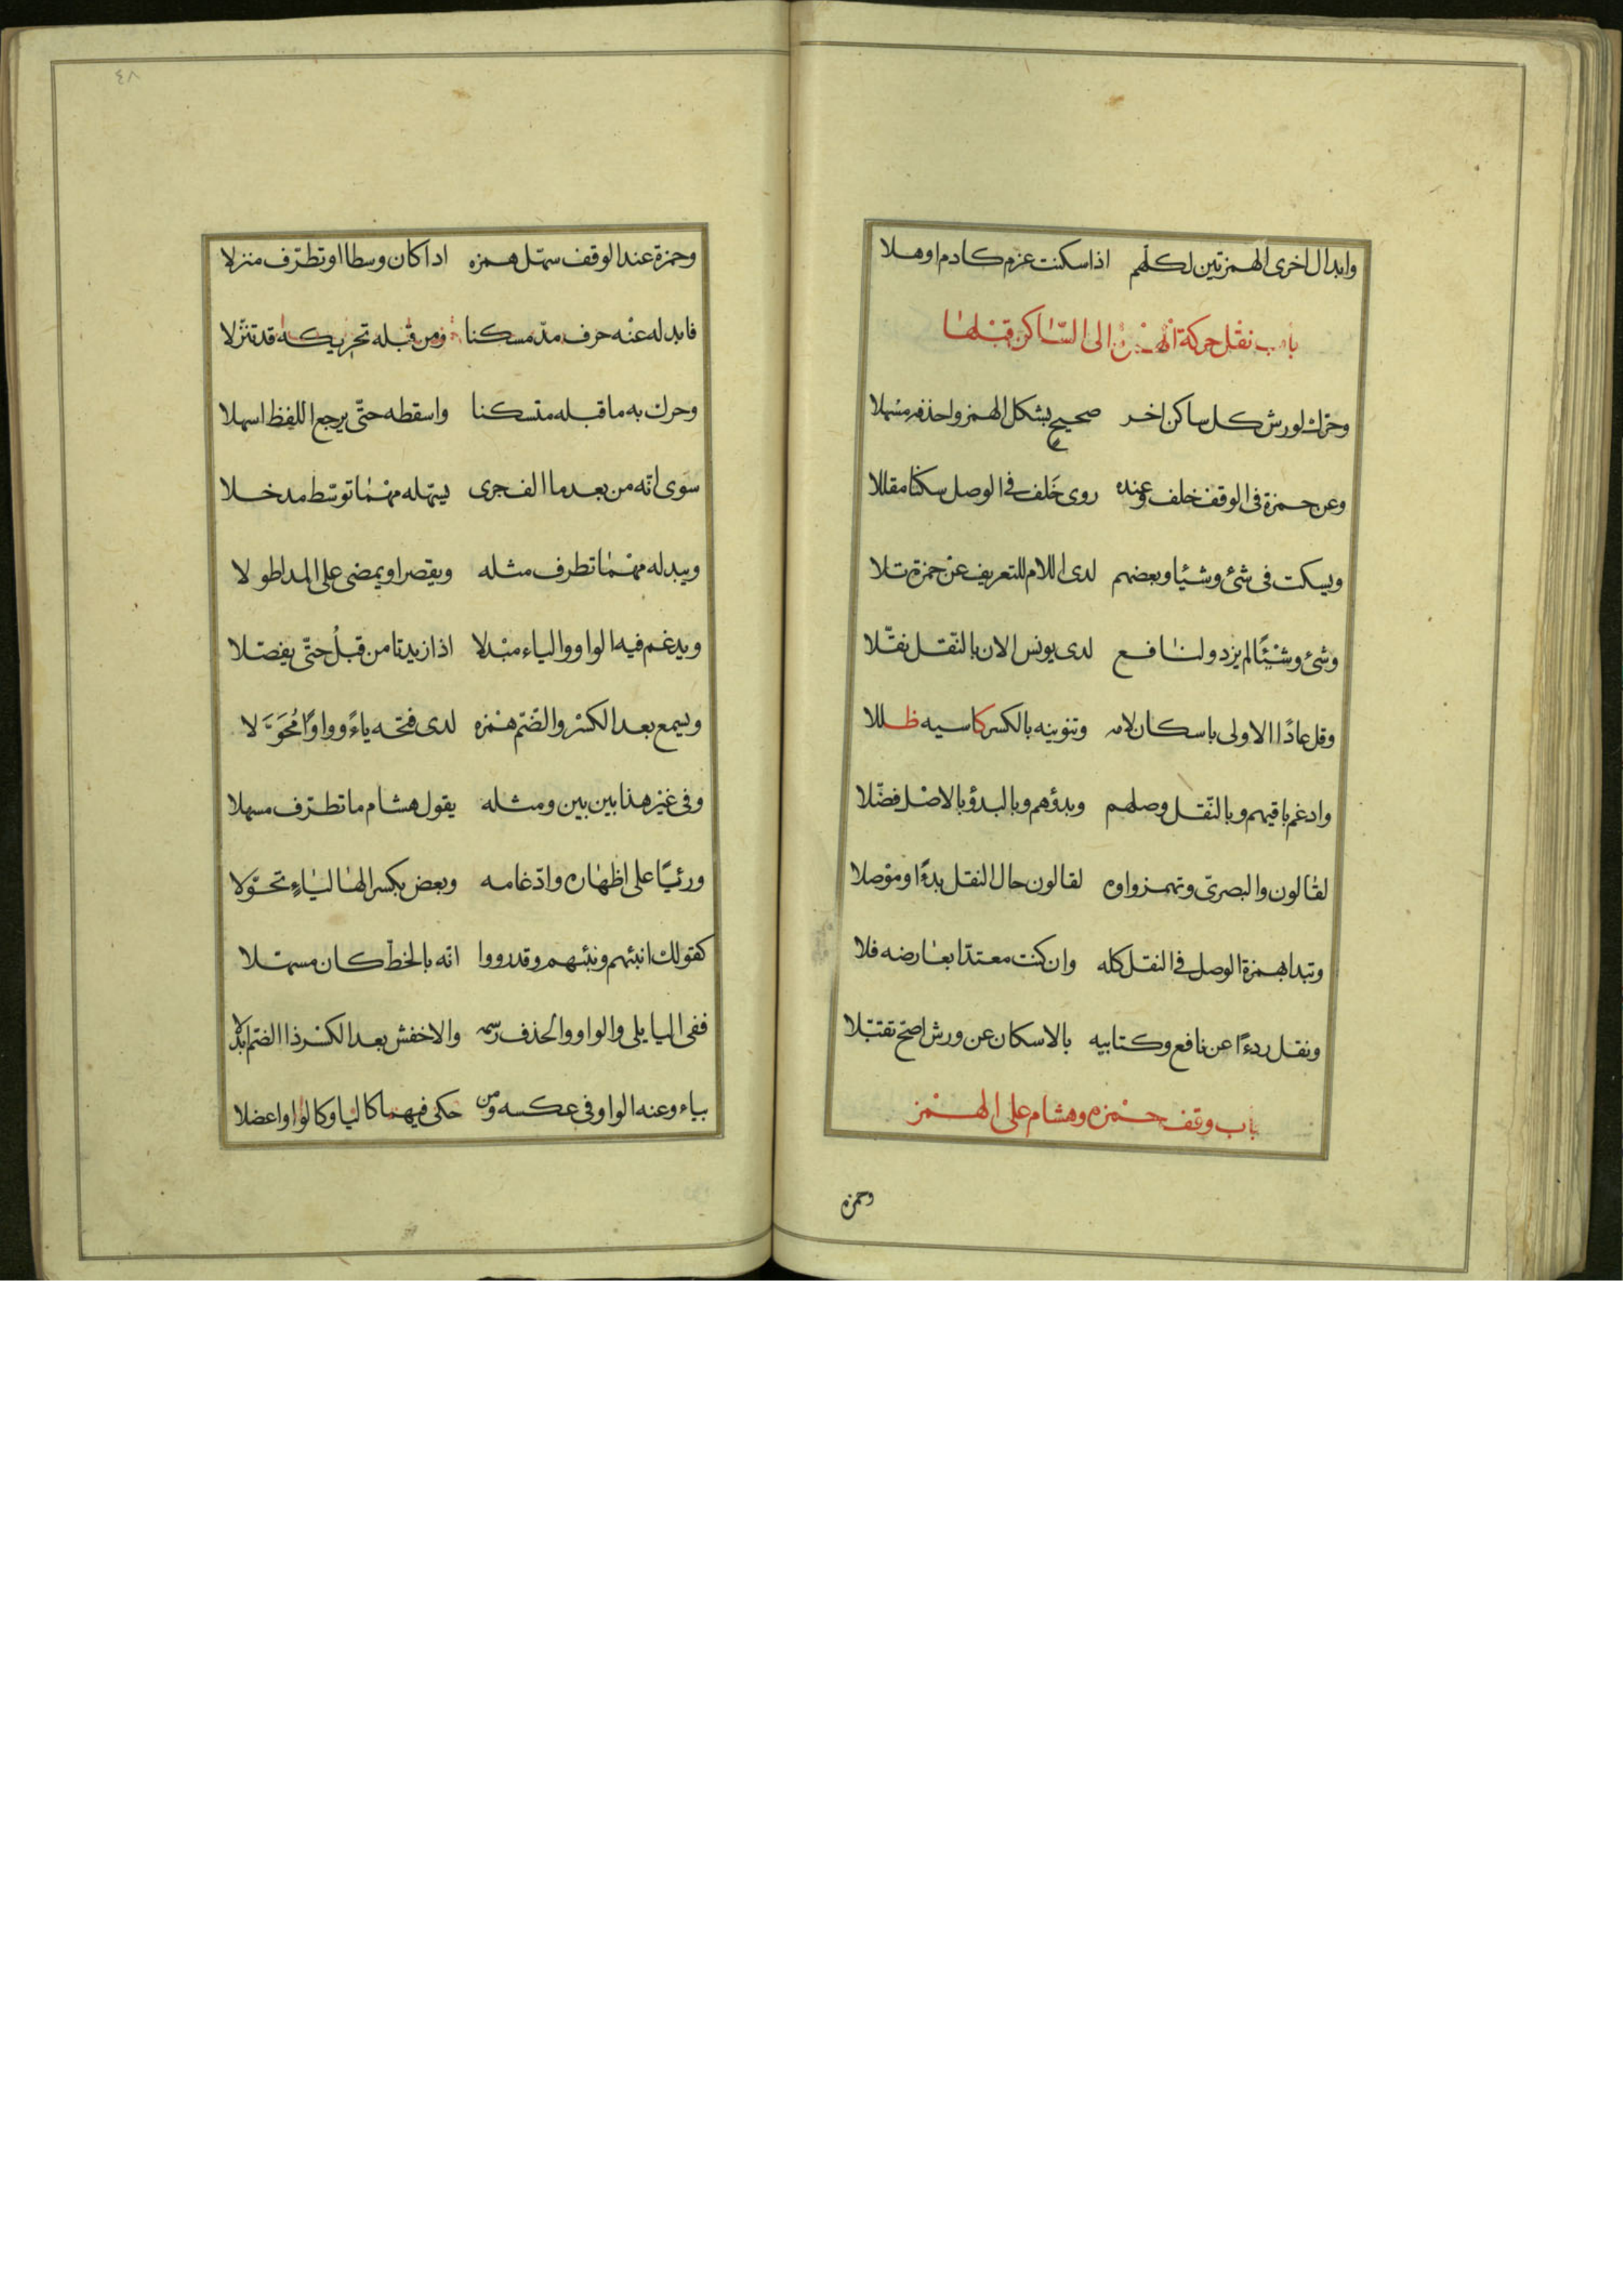 وابدال اخرى الهمزتين لكلهم اذا سكنت عزم كادم اوهلا
باب نقل حركة الهمزة الى الساكن قبلها
وحرك لورش كل ساكن اخر صحيح بشكل الهمز واحذفه مسهلا
وعن حمزة فى الوقف خلف وعنده روى خَلف فى الوصل سكتا مقللا
ويسكت فى شئ وشيئا وبعضهم لدى اللام للتعريف عن حمزة تلا
وشئ وشيئًا لم يزد ولنافع لدى يونس الان بالنّقل نقّلا
وقل عادًا الاولى باسكان لامه وتنوينه بالكسر كاسيه ظللا
وادغم باقيهم وبالنّقل وصلهم وبدؤهم وبالبدؤ بالاصل فضّلا
لقالون والبصرىّ وتهمز واوه لقالون حال النقل بدءًا وموصلا
وتبدا بهمزة الوصل فى النقل كله وان كنت معتدّا بعارضه فلا
ونقل ردءًا عن نافع وكتابيه بالاسكان عن ورش اصحّ تقبّلا
باب وقف حمزه وهشام على الهمز
وحمزه
٤٨
وحمزة عند الوقف سهّل همزه اذا كان وسطا او تطرّف منزلا
فابدله عنه حرف مدّ مسكنا ومن قبله تحريكه قد تنزّلا
وحرك به ما قبله متسكنا واسقطه حتّى يرجع اللفظ اسهلا
سوى انّه من بعد ما الف جرى يسهّله مهما توسّط مدخلا
ويبدله مهما تطرف مثله ويقصر او يمضى على المد اطولا
ويدغم فيه الواو والياء مبدلا اذا زيدتا من قبلُ حتّى يفصّلا
ويسمع بعد الكسر والضّمّ همزه لدى فتحه ياءً وواوًا مُحَوَّلا
وفى غير هذا بين بين ومثله يقول هشام ما تطرّف مسهلا
ورئيًا على اظهاره وادّغامه وبعض بكسر الها لياءٍ تحوّلا
كقولك انبئهم ونبئهم وقد رووا انّه بالخطّ كان مسهّلا
ففى اليا يلى والواو والحذف رسمه والاخفش بعد الكسر ذا الضّم ابدلا
بياء وعنه الواو فى عكسه ومن حكى فيهما كاليا وكالواو اعضلا